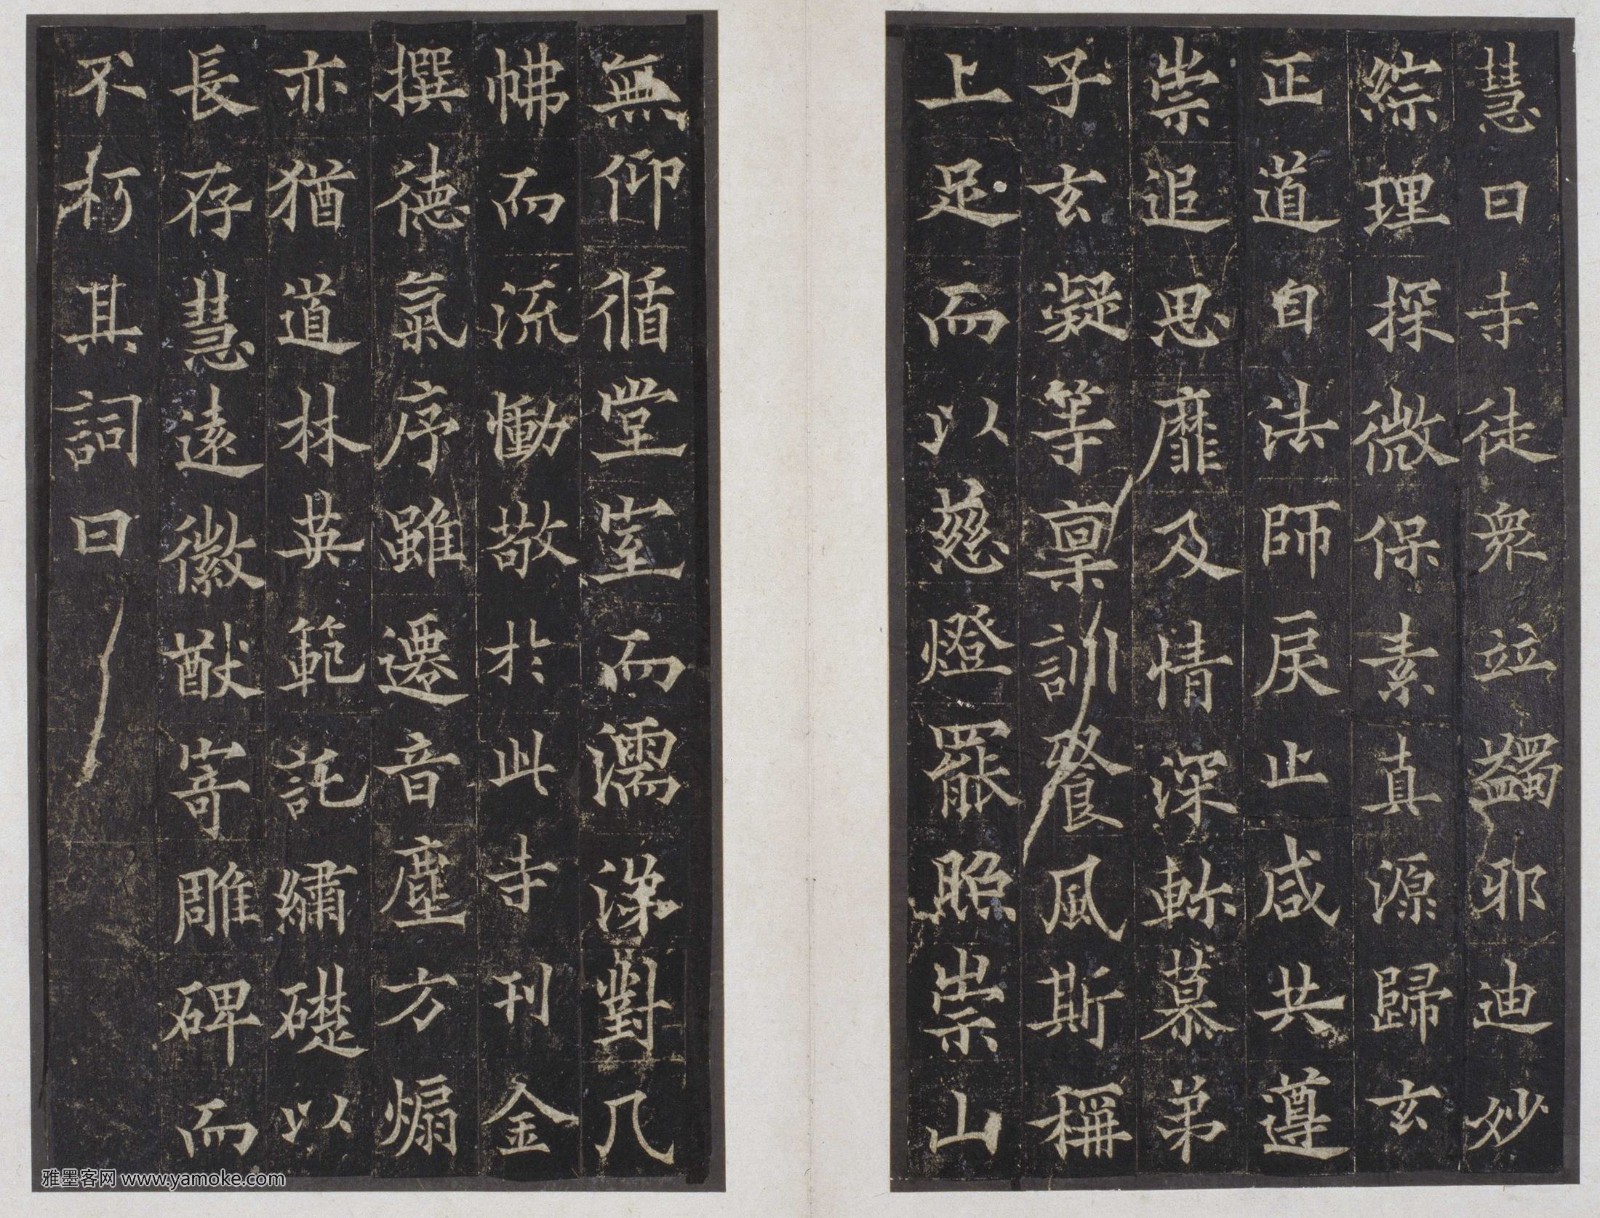 慧曰寺徒衆竝蠲邪迪妙
綜理探微保素真源歸玄
正道自法師戾止咸共遵
崇追思靡及情深軫慕弟
子玄凝等稟訓飡風斯稱
上足而以慈燈罷照崇山
無仰循堂室而濡涕對几
怫而流慟敬於此寺刊金
撰德氣序雖遷音塵方煽
亦猶道林英範託繡礎以
長存慧遠徽猷寄雕碑而
不朽其詞曰
雅墨客网 www.yamoke.com